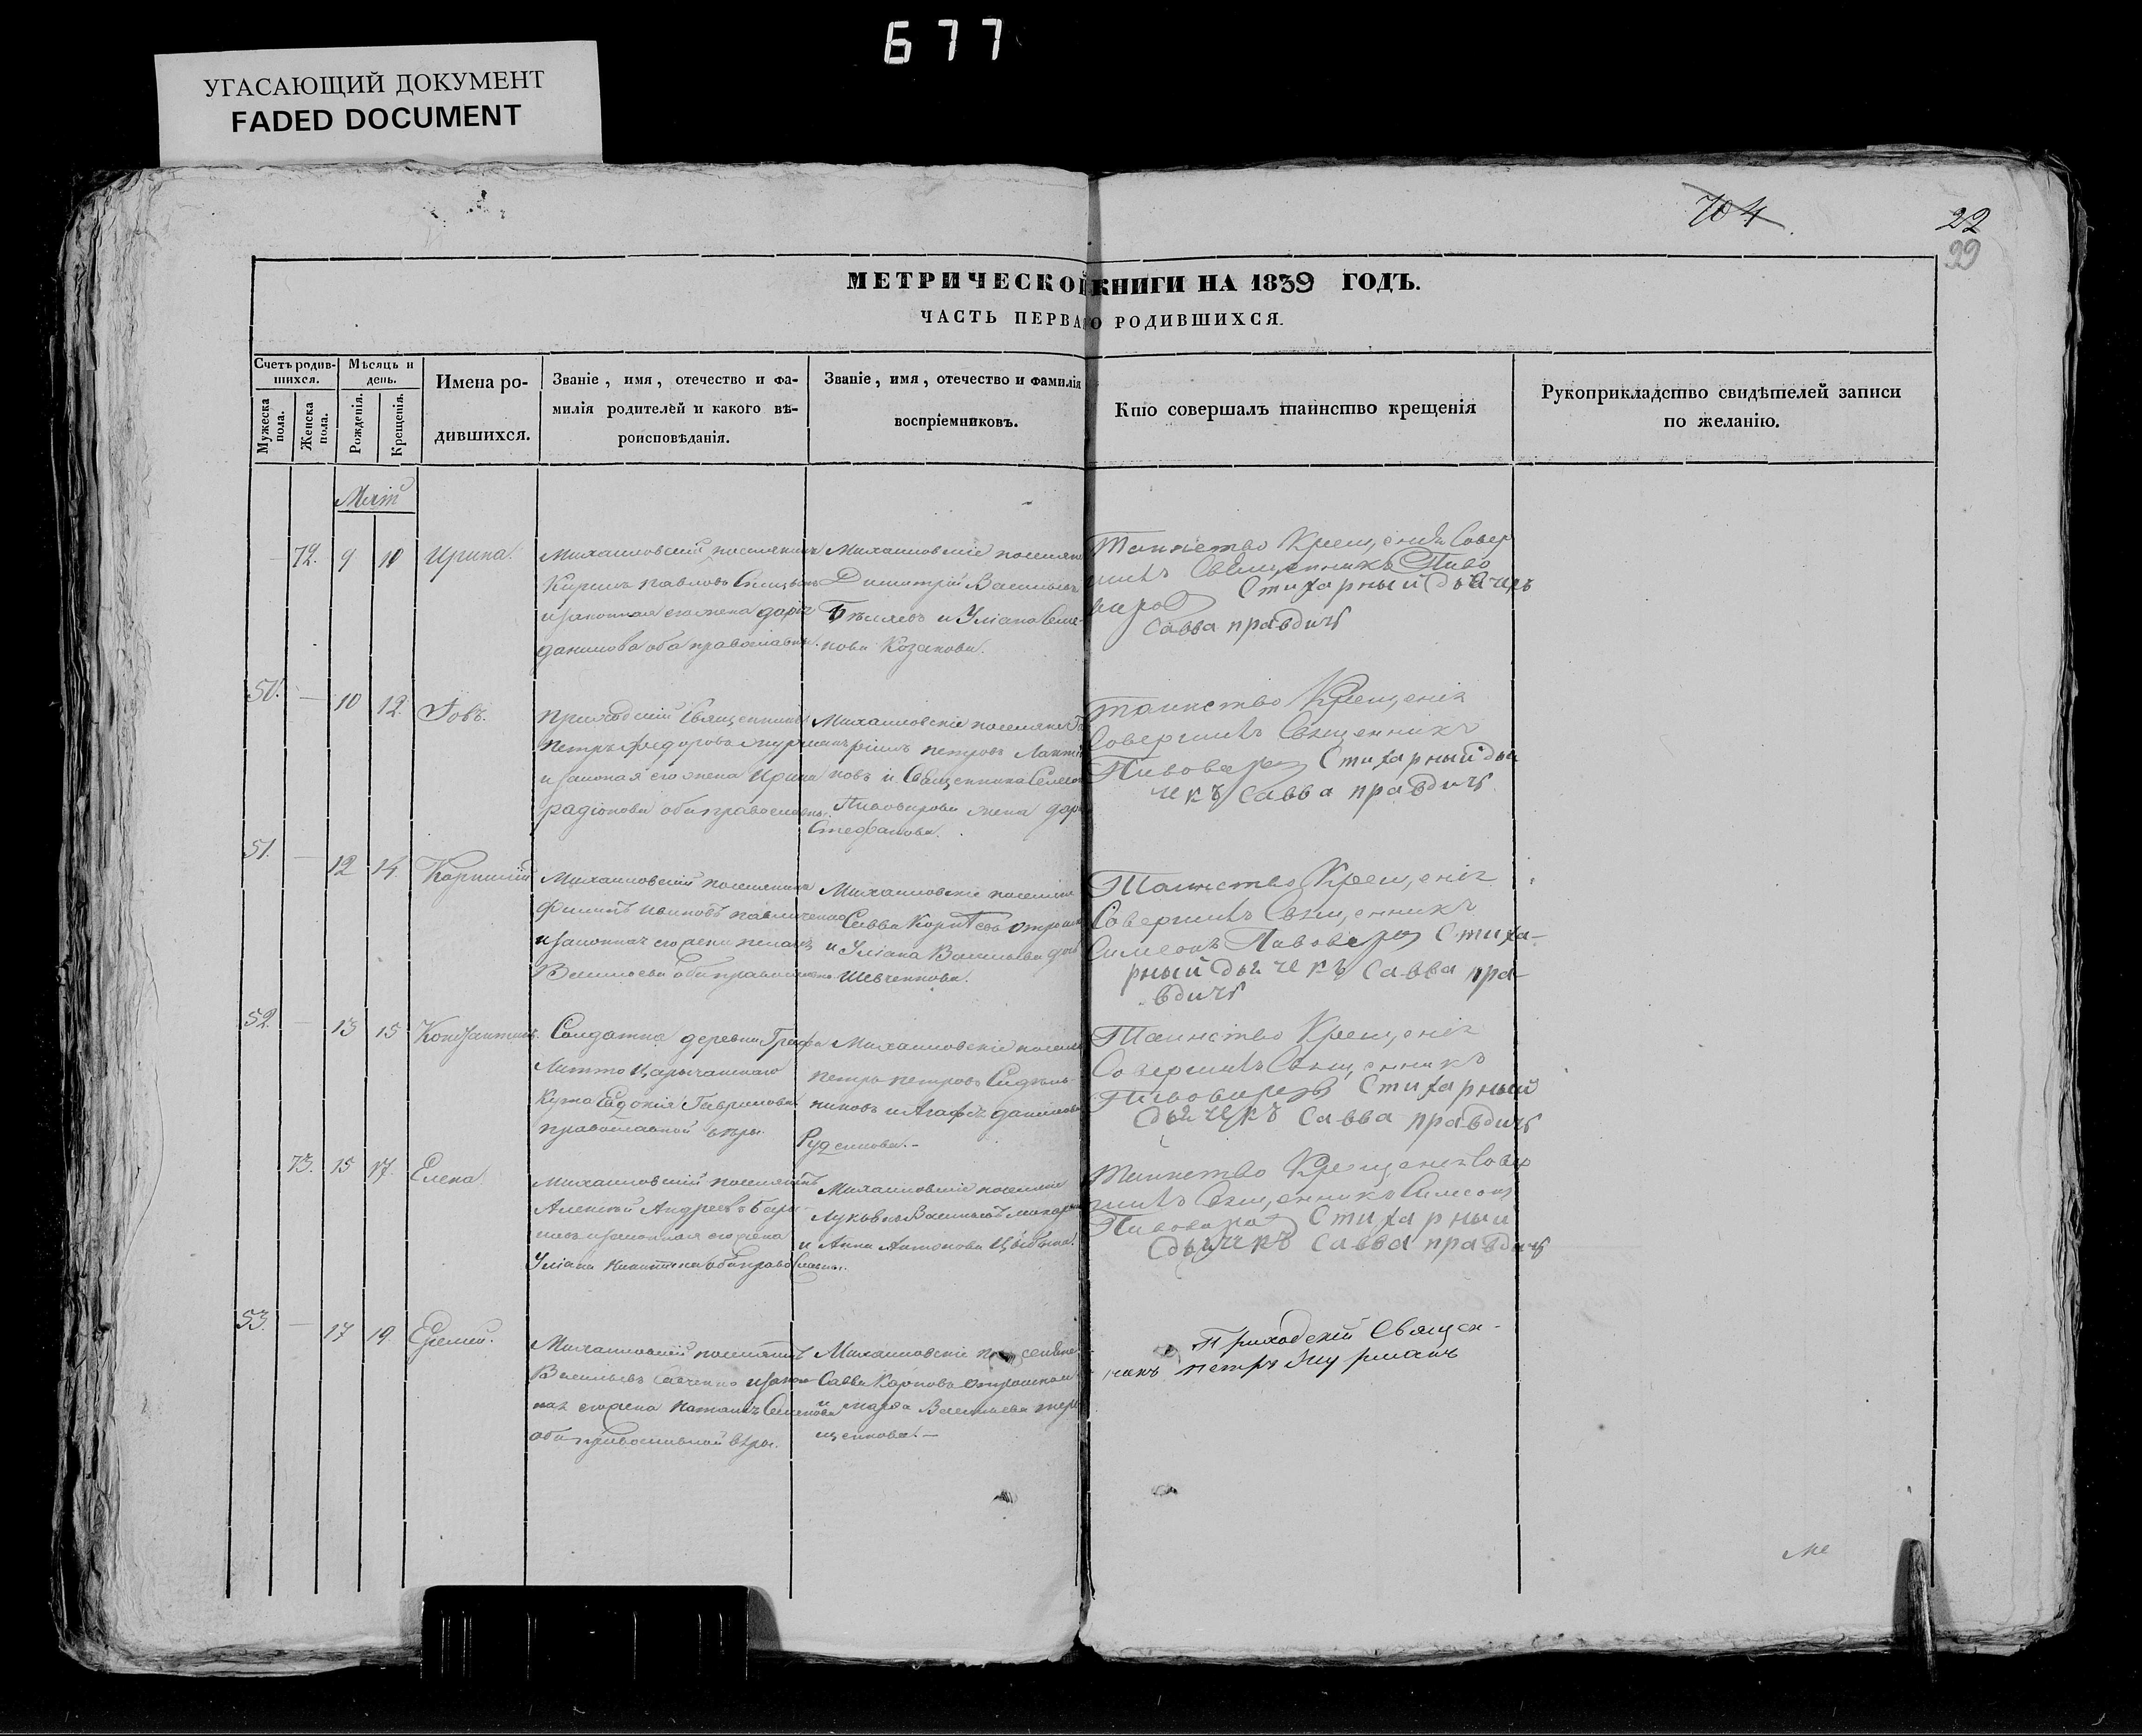 677
УГАСАЮЩИЙ ДОКУМЕНТ
FADED DOCUMENT
704
22
99
МЕТРИЧЕСКОЙ КНИГИ НА 1839 ГОДЪ.
ЧАСТЬ ПЕРВАЯ О РОДИВШИХСЯ.
Счетъ родив-
шихся.
Мужеска
пола.
Женска
пола.
Мѣсяцъ и
день.
Рожденія.
Крещенія.
Имена ро-
дившихся.
Званіе, имя, отечество и фа-
милія родителей и какого вѣ-
роисповѣданія.
Званіе, имя, отечество и фамилія
воспріемниковъ.
Кто совершалъ таинство крещенія
Рукоприкладство свидѣтелей записи
по желанію.
Маій
72. 9 10 Ирина.
Михаиловскій поселянинъ
Кирилъ Павловъ
и законная его жена Дарія
Данилова оба православны.
Михаиловскіе поселяне
Димитрій Васильевъ
Бѣляевъ и Уліана Семе-
нова Козакова.
Таинство Крещенія Совер
шилъ Священникъ Пиво
варов Стихарный дьячекъ
Савва правдичъ
50. — 10 12. Іовъ.
Приходскій Священникъ
Петръ Федоровъ Мурманъ
и законая его жена Ирина
Радіонова оба православны.
Михаиловскіе поселяне
петровъ
новъ и Священника Симеона
Пивоварова жена Дарія
Стефанова.
Таинство Крещенія
Совершилъ Священникъ
Пивоваров Стихарный дья
чекъ Савва правдичъ
51. — 12 14. Корнилій
Михаиловскій поселянинъ
Филипъ Ивановъ Павличенко
и законная его жена Пелагія
Васильева оба православные
Михаиловскіе поселяне
Савва
и Уліана Васильева дочь
Шевченкова.
Таинство Крещенія
Совершилъ Священникъ
Симеонъ Пивоваров Стиха-
рный дьячекъ Савва пра-
вдичъ
52. — 13 15 Константинъ.
Солдатка деревни Графа
Литто Царычанскаго
Кута Евдокія Гаврилова
православной вѣры.
Михаиловскіе поселяне
Петръ Петровъ
никовъ и Агафія Данилова
Руденкова.—
Таинство Крещенія
Совершилъ Священникъ
Пивоваров Стихарный
дьячекъ Савва правдичъ
73. 15 17. Елена
Михаиловскій поселянинъ
Алексѣй Андреевъ
и законная его жена
Уліана Никитина оба православны.
Михаиловскіе поселяне
Васильевъ
и Анна Антонова
Таинство Крещенія Совер
шилъ Священникъ Симеон
Пивоваров Стихарный
дьячекъ Савва правдичъ
53. — 17 19.
Михаиловскій поселянинъ
Васильевъ Савченко и закон
ная его жена Наталія Семенова
оба православной вѣры.
Михаиловскіе поселяне
Савва Карповъ
и Марфа Васильева Тере
щенкова.—
Приходскій Священ-
никъ Петръ Мурманъ
Ме